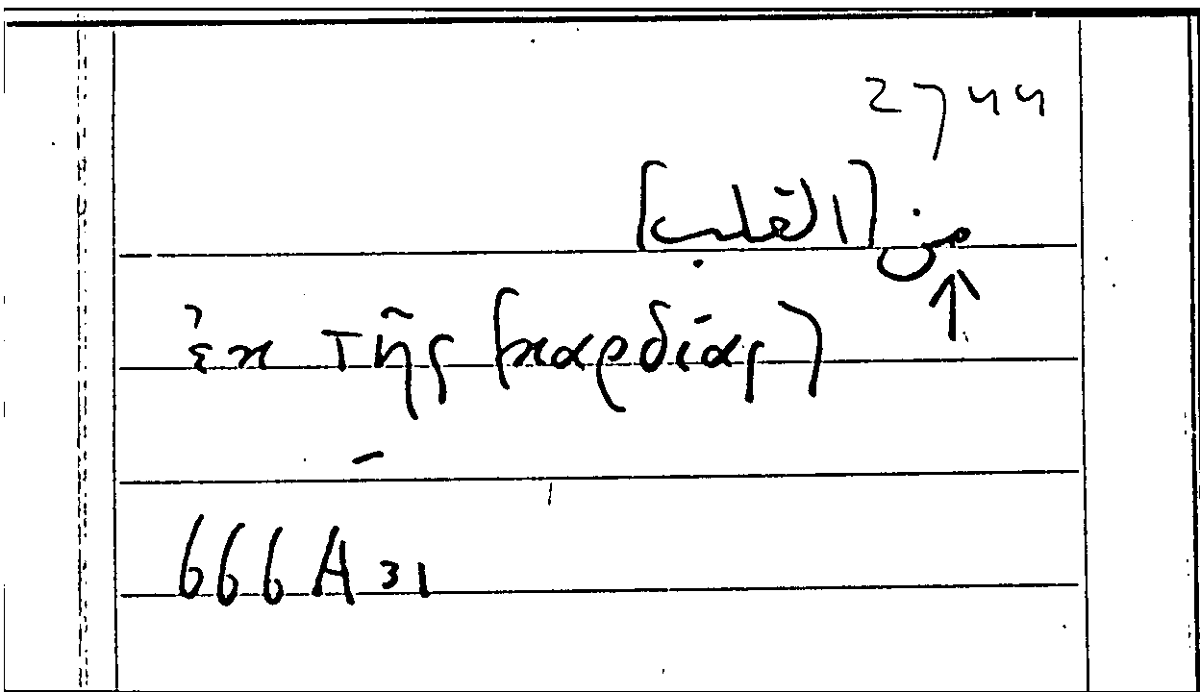 2744
من [القلب]
ἐκ τῆς (καρδίας)
666A31